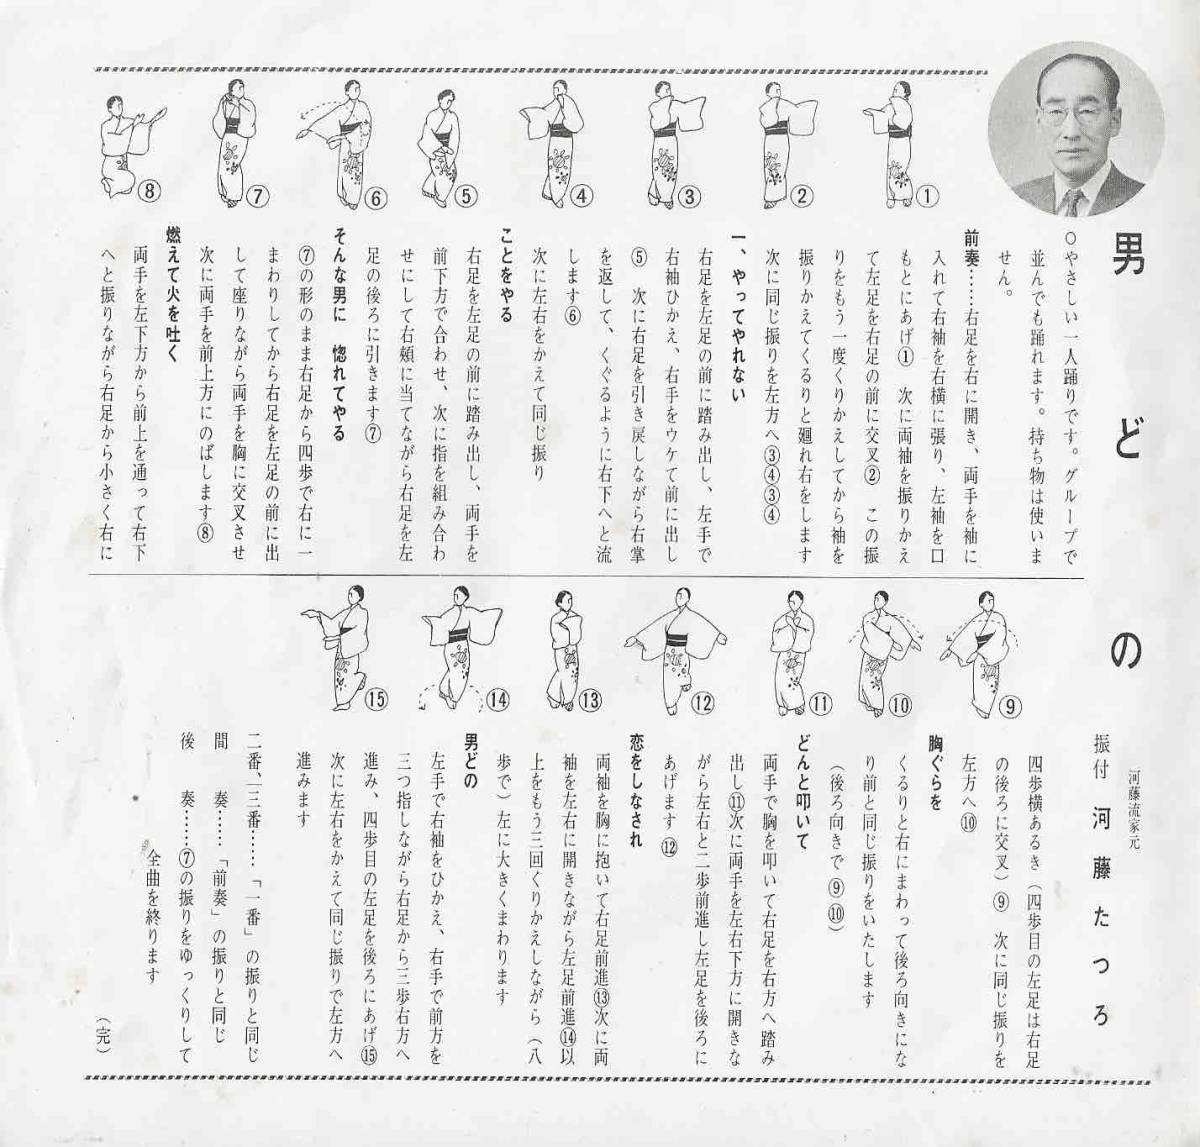 男どの
振付 河藤たつろ
(河藤流家元)
○やさしい一人踊りです。グループで
並んでも踊れます。持ち物は使いま
せん。
前奏……右足を右に開き、両手を袖に
入れて右袖を右横に張り、左袖を口
もとにあげ① 次に両袖を振りかえ
て左足を右足の前に交叉② この振
りをもう一度くりかえしてから袖を
振りかえてくるりと廻れ右をします
次に同じ振りを左方へ③④③④
一、やってやれない
右足を左足の前に踏み出し、左手で
右袖ひかえ、右手をウケて前に出し
⑤ 次に右足を引き戻しながら右掌
を返して、くぐるように右下へと流
します⑥
次に左右をかえて同じ振り
ことをやる
右足を左足の前に踏み出し、両手を
前下方で合わせ、次に指を組み合わ
せにして右頬に当てながら右足を左
足の後ろに引きます⑦
そんな男に 惚れてやる
⑦の形のまま右足から四歩で右に一
まわりしてから右足を左足の前に出
して座りながら両手を胸に交叉させ
次に両手を前上方にのばします⑧
燃えて火を吐く
両手を左下方から前上を通って右下
へと振りながら右足から小さく右に
①
②
③
④
⑤
⑥
⑦
⑧
四歩横あるき(四歩目の左足は右足
の後ろに交叉)⑨ 次に同じ振りを
左方へ⑩
胸ぐらを
くるりと右にまわって後ろ向きにな
り前と同じ振りをいたします
(後ろ向きで⑨⑩)
どんと叩いて
両手で胸を叩いて右足を右方へ踏み
出し⑪次に両手を左右下方に開きな
がら左右と二歩前進し左足を後ろに
あげます⑫
恋をしなされ
両袖を胸に抱いて右足前進⑬次に両
袖を左右に開きながら左足前進⑭以
上をもう三回くりかえしながら(八
歩で)左に大きくまわります
男どの
左手で右袖をひかえ、右手で前方を
三つ指しながら右足から三歩右方へ
進み、四歩目の左足を後ろにあげ⑮
次に左右をかえて同じ振りで左方へ
進みます
二番、三番……「一番」の振りと同じ
間 奏……「前奏」の振りと同じ
後 奏……⑦の振りをゆっくりして
全曲を終ります
(完)
⑨
⑩
⑪
⑫
⑬
⑭
⑮